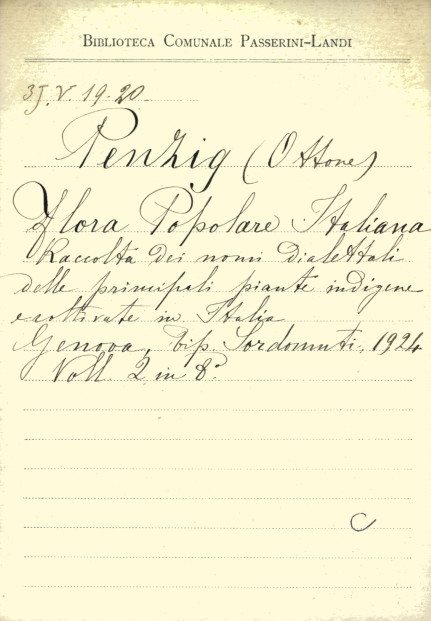 BIBLIOTECA COMUNALE PASSERINI-LANDI
3J.V.19.20.
Penzig (Ottone)
Flora Popolare Italiana
Raccolta dei nomi dialettali
delle principali piante indigene
e coltivate in Italia
Genova, Tip. Sordomuti, 1924
Voll. 2 in 8°
C